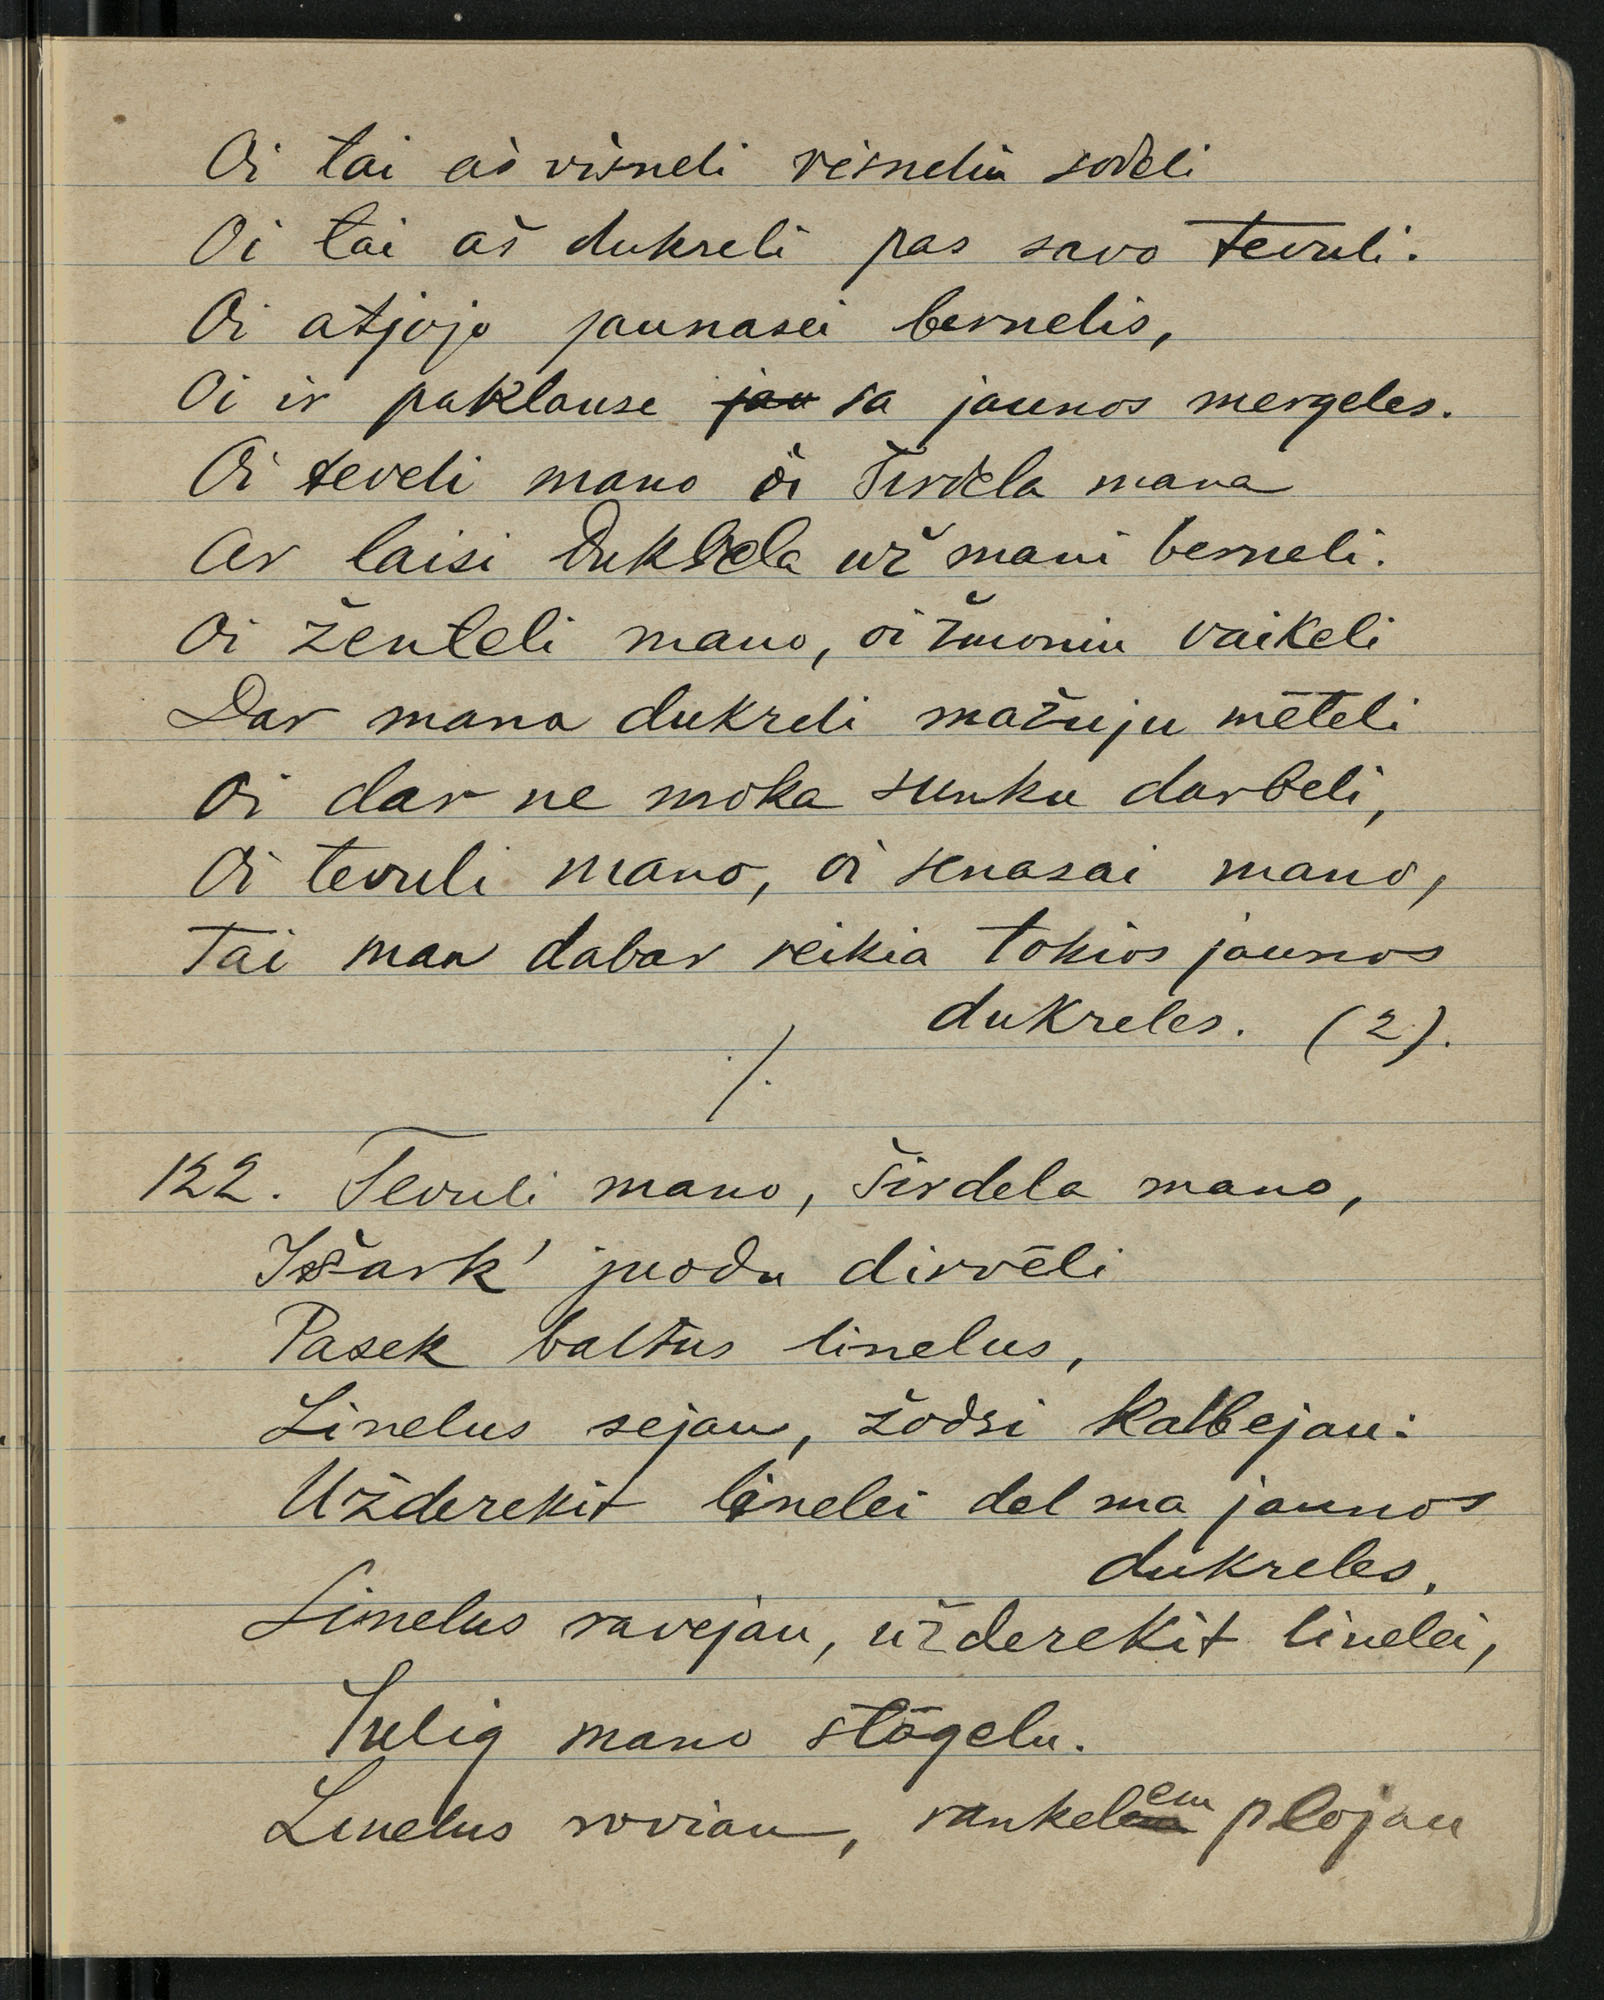 Oi tai aš višneli višneliu sodeli
Oi tai aš dukreli pas savo tevuli.
Oi atjojo jaunasei bernelis,
Oi ir paklause jau sa jaunos mergeles.
Oi teveli mano oi širdela mana
Ar laisi dukrela už mani berneli.
Oi ženteli mano, oi žmoniu vaikeli
Dar mana dukreli mažuju mēteli
Oi dar ne moka sunku darbeli,
Oi tevuli mano, oi senasai mano,
Tai man dabar reikia tokios jaunos
dukreles. (2).
./.
122. Tevuli mano, širdela mano,
Išark' juodu dirvēli
Pasek baltus linelus,
Linelus sejau, žodzi kalbejau:
Užderekit linelei del ma jaunos
dukreles.
Linelus ravejau, užderekit linelei,
Sulig mano stōgelu.
Linelus roviau, rankelem plojau